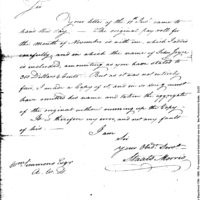 Sir
Your letter of the 11th Inst. came to
hand this day. The original pay roll for
the month of November is with me, which I solicit
carefully, and in which the name of John Joyce
is included, amounting as you have stated to
200 Dollars & Cents. But as it was not entirely
fair, I made a Copy of it, and in so doing must
have omitted his name and taken the aggregate
of the original without summing up the Copy.
It is therefore my error, and not any fault
of his.
I am
Sir
your Obdt. Servt.
Staats Morris
Wm Simmons Esqr
A. W. D.